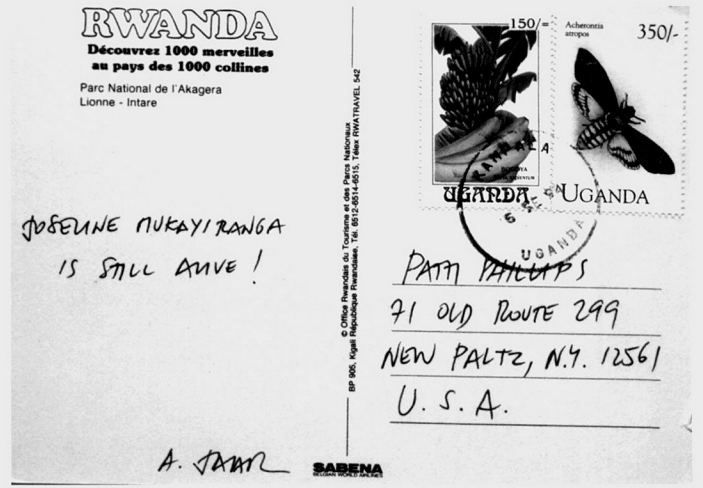 RWANDA
Découvrez 1000 merveilles
au pays des 1000 collines
Parc National de l'Akagera
Lionne - Intare
JOSELINE MUKAYIRANGA
IS STILL ALIVE !
A. JAAR
© Office Rwandais du Tourisme et des Parcs Nationaux
BP 905, Kigali République Rwandaise, Tél. 6512-6514-6515, Télex RWATRAVEL 542
SABENA
BELGIAN WORLD AIRLINES
150/=
UGANDA
Acherontia
atropos
350/-
UGANDA
KAMPALA
5 SE 94
UGANDA
PATTI PHILLIPS
71 OLD ROUTE 299
NEW PALTZ, N.Y. 12561
U.S.A.